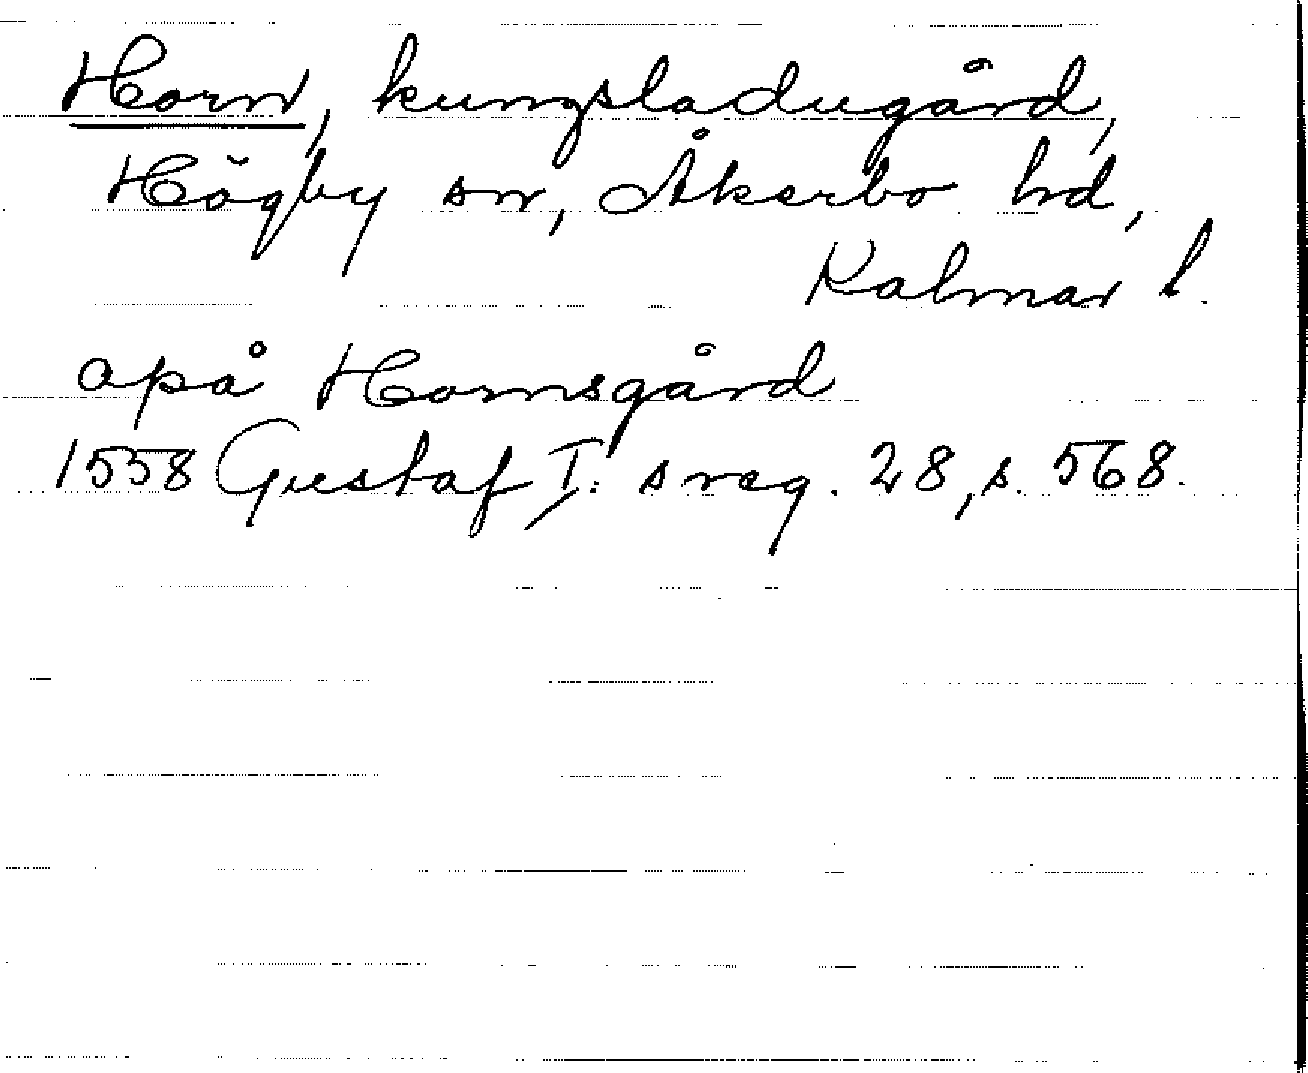 Horn, kungsladugård,
Högby sn, Åkerbo hd,
Kalmar l.
opå Hornsgård
1558 Gustaf I: s reg. 28, s. 568.